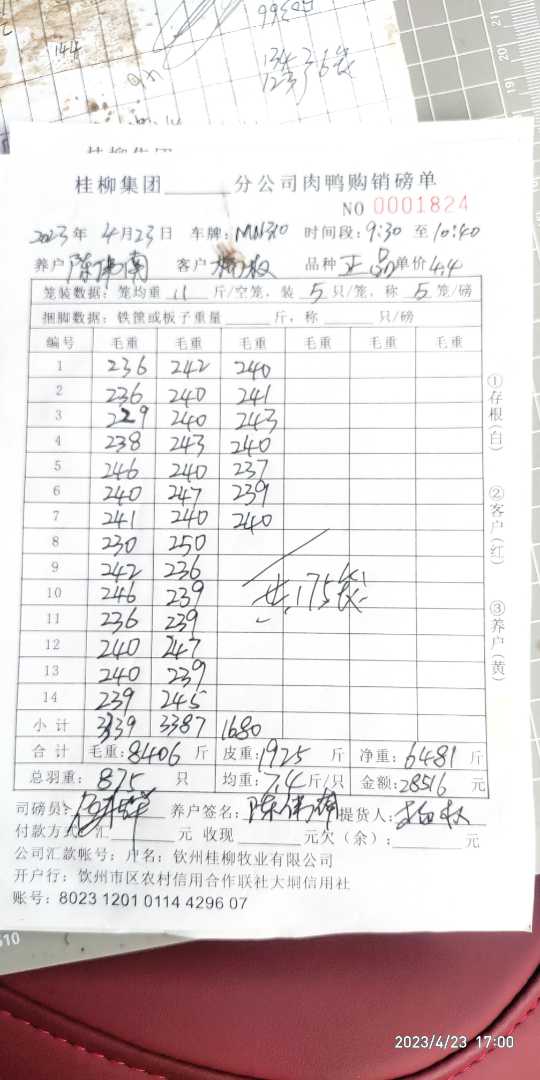 144
134
123 36袋
桂柳集团
桂柳集团______分公司肉鸭购销磅单
NO 0001824
2023年 4月23日 车牌: 时间段:9:30 至10:40
养户 陈伟南 客户 品种 正品 单价4.4
笼装数据: 笼均重 11 斤/空笼, 装 5 只/笼, 称 5 笼/磅
捆脚数据: 铁篦或板子重量______斤, 称______只/磅
编号 毛重 毛重 毛重 毛重 毛重 毛重
1 236 242 240
2 236 240 241
3 229 240 243
4 238 243 240
5 246 240 237
6 240 247 239
7 241 240 240
8 230 250
9 242 236
10 246 239 共175袋
11 236 239
12 240 247
13 240 239
14 239 245
小计 3339 3387 1680
合计 毛重:8406 斤 皮重:1925 斤 净重:6481 斤
总羽重: 875 只 均重:7.4斤/只 金额:28516 元
司磅员: 养户签名: 提货人:
付款方式: 汇______元 收现______元欠(余):______元
公司汇款账号: 户名: 钦州桂柳牧业有限公司
开户行: 钦州市区农村信用合作联社大垌信用社
账号: 8023 1201 0114 4296 07
①存根(白)
②客户(红)
③养户(黄)
2023/4/23 17:00